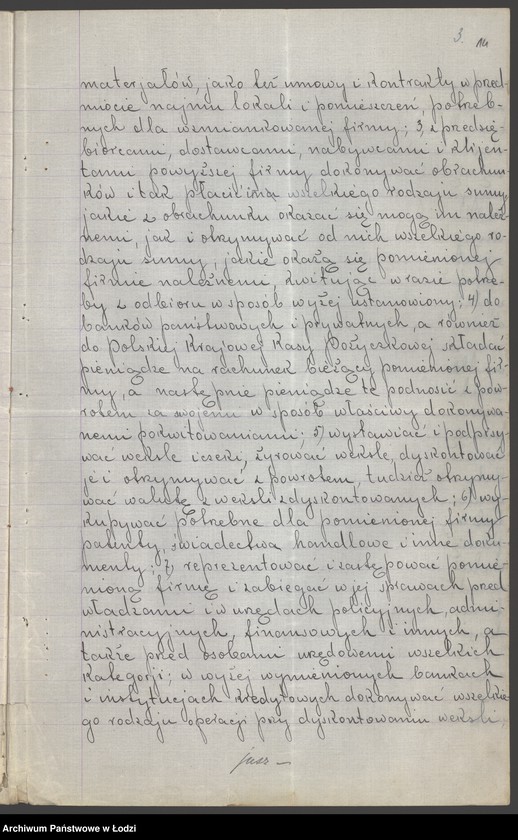 3. 14
materjałów, jako też umowy i kontrakty w przed-
miocie najmu lokali i pomieszczeń, potrzeb-
nych dla wzmiankowanej firmy; 3, z przedsię-
biorcami, dostawcami, nabywcami i klijen-
tami powyższej firmy dokonywać obrachun-
ków i tak płacić im wszelkiego rodzaju sumy,
jakie z obrachunku okazać się mogą im należ-
nemi, jak i otrzymywać od nich wszelkiego ro-
dzaju sumy, jakie okażą się pomienionej
firmie należnemi, kwitując w razie potrze-
by z odbioru w sposób wyżej ustanowiony; 4) do
banków państwowych i prywatnych, a również
do Polskiej Krajowej Kasy Pożyczkowej składać
pieniądze na rachunek bieżący pomienionej fir-
my, a następnie pieniądze te podnosić z pow-
rotem za swojemi w sposób właściwy dokonywa-
nemi pokwitowaniami; 5) wystawiać i podpisy-
wać weksle i czeki, żyrować weksle, dyskontować
je i otrzymywać z powrotem, tudzież otrzymy-
wać walutę z weksli zdyskontowanych; 6) wy-
kupywać potrzebne dla pomienionej firmy
patenty, świadectwa handlowe i inne doku-
menty; 7, reprezentować i zastępować pomie-
nioną firmę i zabiegać w jej sprawach przed
władzami i w urzędach policyjnych, admi-
nistracyjnych, finansowych i innych, a
także przed osobami urzędowemi wszelkich
kategorji; w wyżej wymienionych bankach
i instytucjach kredytowych dokonywać wszelkie-
go rodzaju operacji przy dyskontowaniu weksli,
Archiwum Państwowe w Łodzi